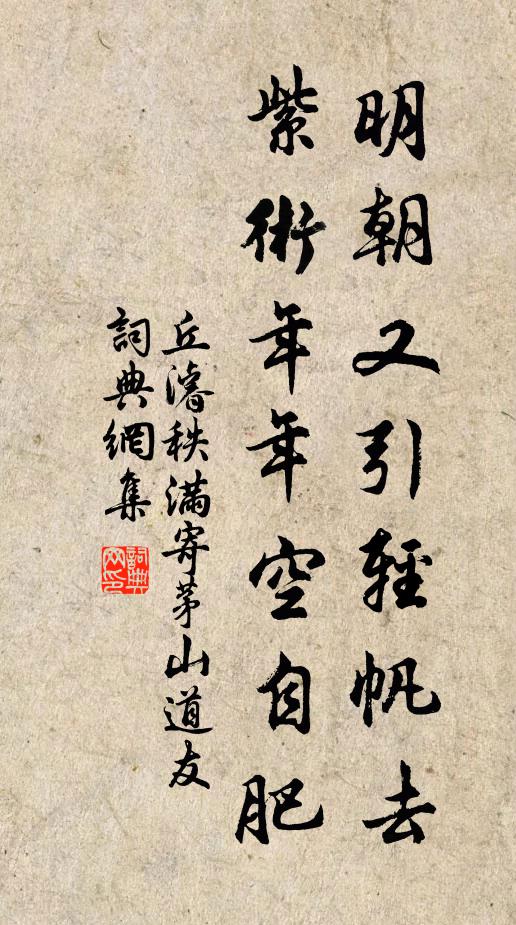 明朝又引輕帆去
紫術年年空自肥
丘濬秩滿寄茅山道友
詞典網集
詞典網印